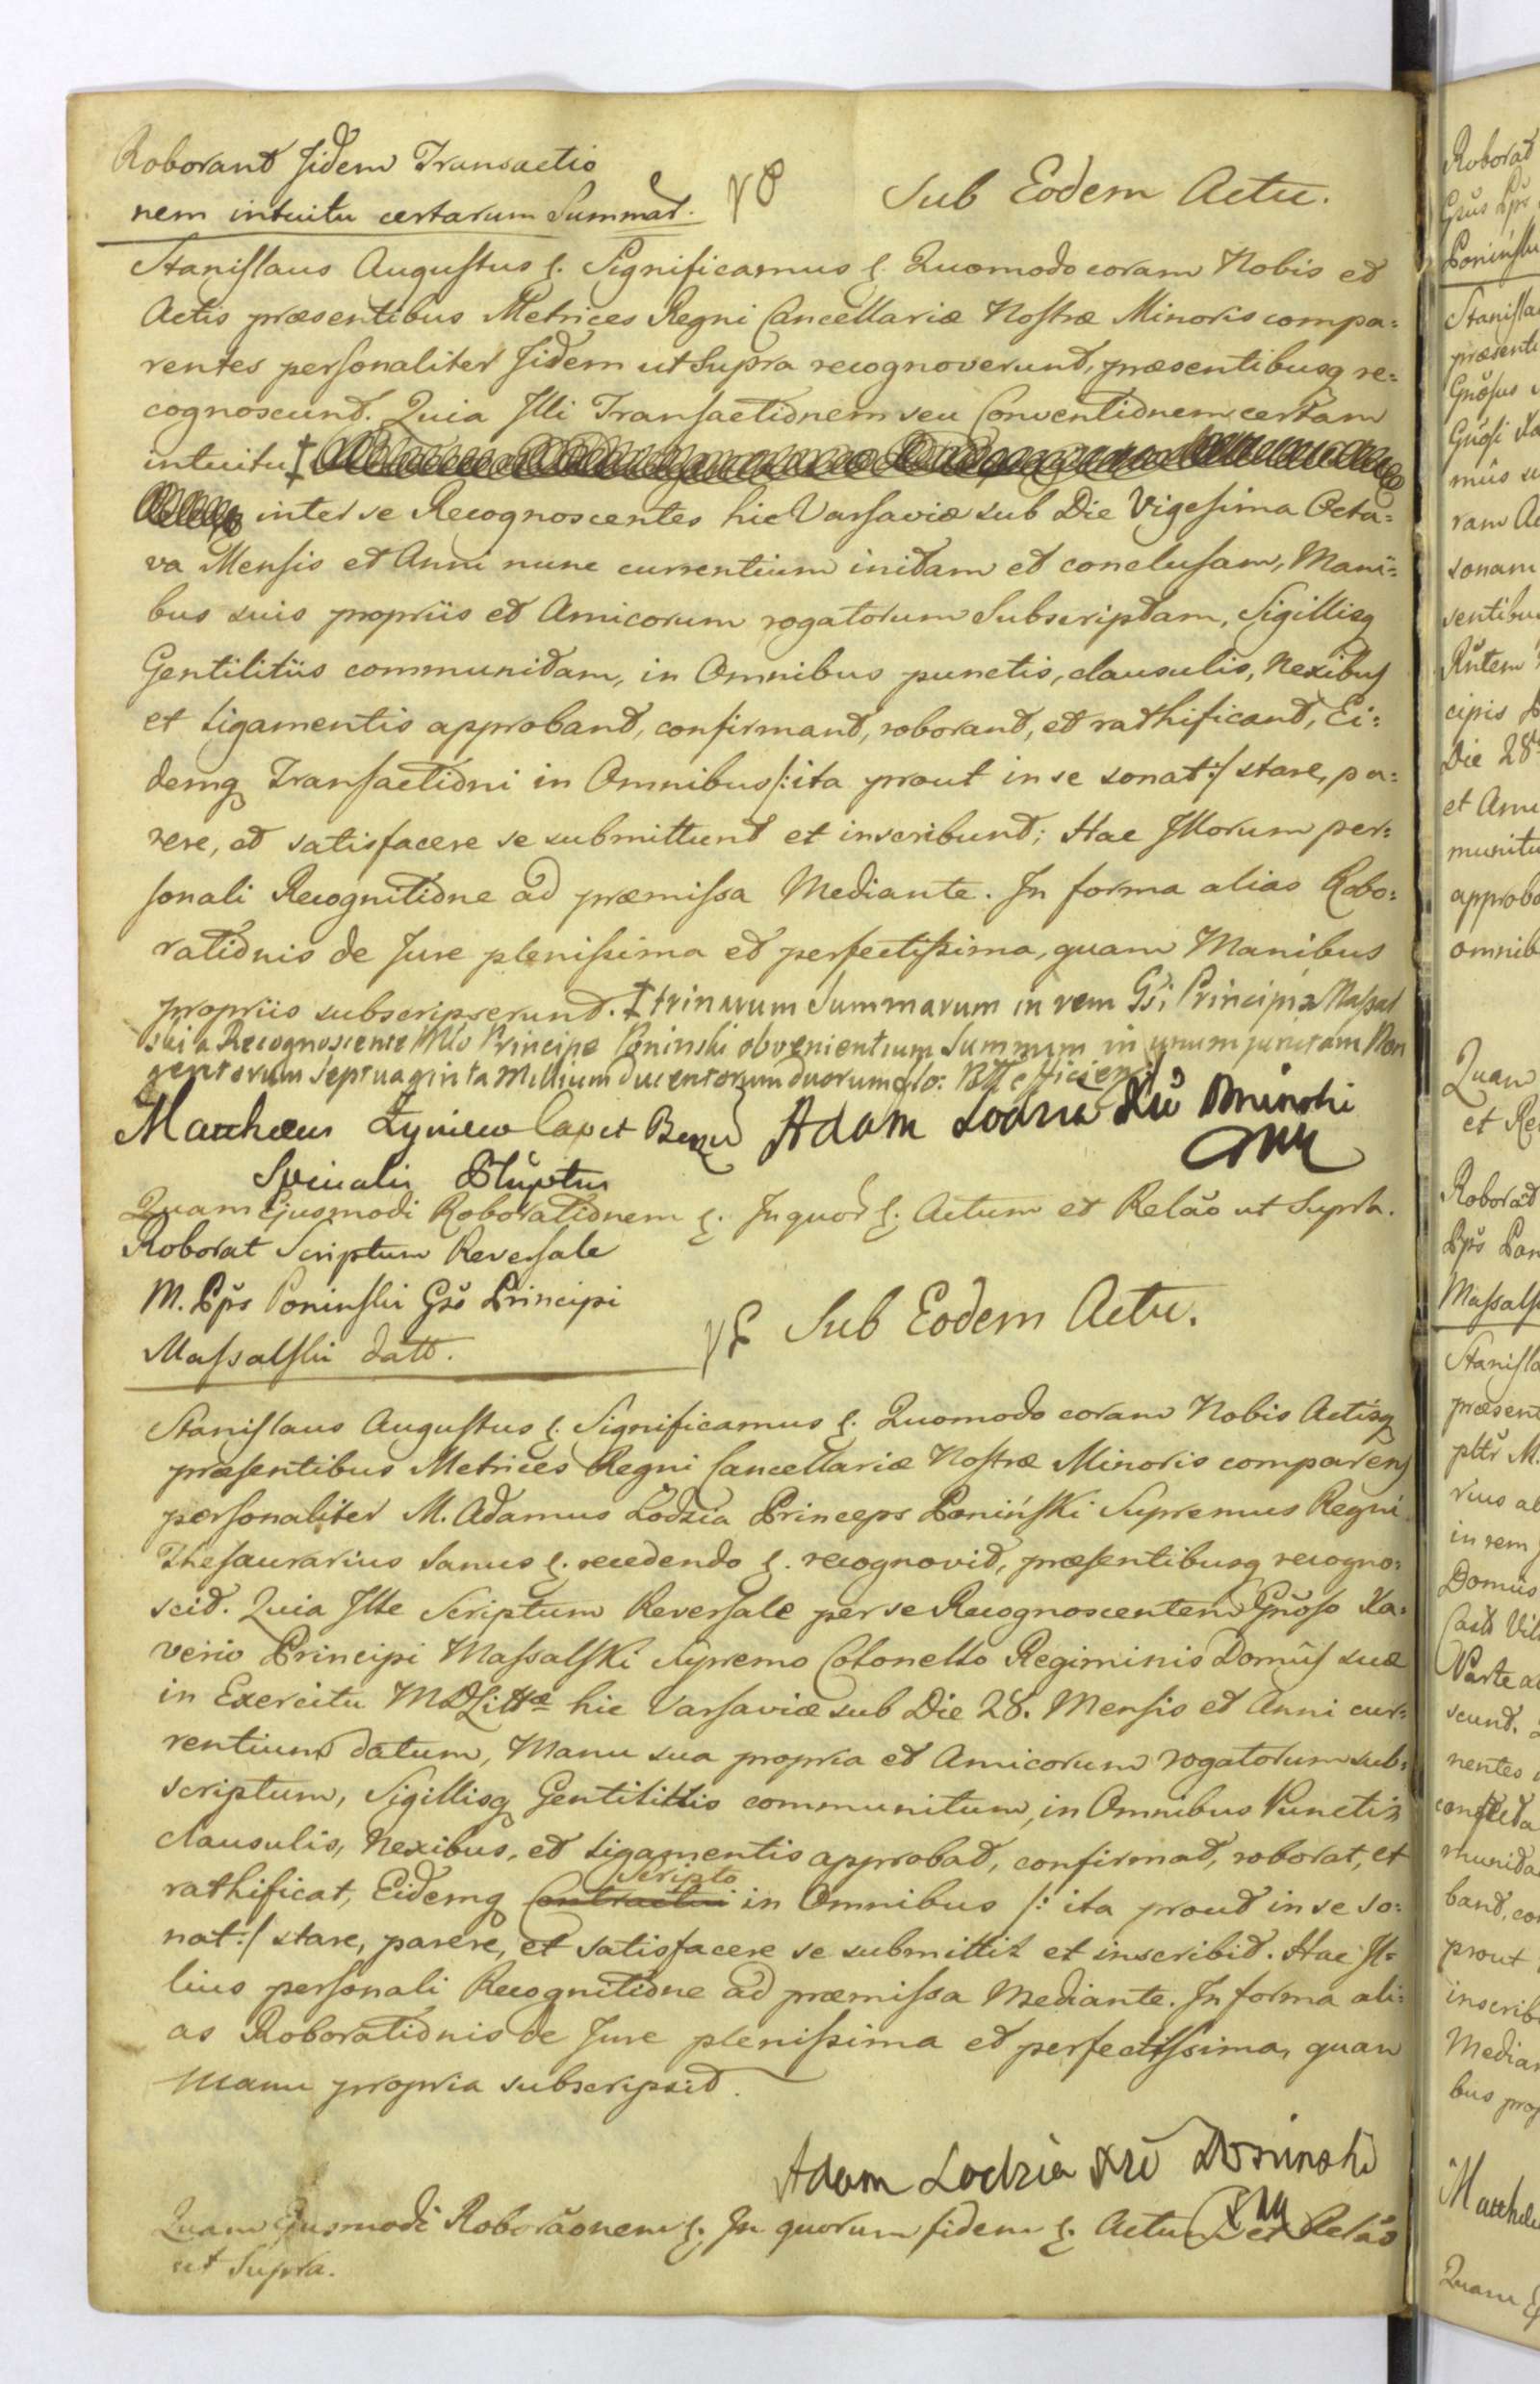 Roborant Jidem Transactio
nem intuitu certarum Summar.
Sub Eodem Actu.
Stanislaus Augustus &. Significamus &. Quomodo coram Nobis et
Actis præsentibus Metrices Regni Cancellariæ Nostræ Minoris compa=
rentes personaliter Jidem ut Supra recognoverunt, præsentibusq re=
cognoscunt. Quia Illi Transactionem seu Conventionem certam
intuitu †
inter se Recognoscentes hic Varsaviæ sub Die Vigesima Octa=
va Mensis et Anni nunc currentium initam et conclusam, Mani=
bus suis propriis et Amicorum rogatorum Subscriptam, Sigillisq
Gentilitiis communitam, in Omnibus punctis, clausulis, Nexibus
et Ligamentis approbant, confirmant, roborant, et rathificant, Ei=
demq Transactioni in Omnibus /: ita prout in se sonat :/ stare, pa=
rere, et satisfacere se submittunt et inscribunt; Hac Illorum per=
sonali Recognitione ad præmissa Mediante. In forma alias Robo=
rationis de Jure plenissima et perfectissima, quam Manibus
propriis subscripserunt. † trinarum Summarum in rem Gsi Principis Massal
ski a Recognoscente Principe Poninski obvenientium Summam in unum junctam Non
gentorum septuaginta Millium ducentorum duorum flo:
Mattheus Zyniew Capit
Adam Lodzia Xże Poninski
Quam Ejusmodi Roborationem &. In quor &. Actum et Relão ut Supra.
Roborat Scriptum Reversale
M. Pps Poninski Gso Principi
Massalski datt.
Sub Eodem Actu.
Stanislaus Augustus &. Significamus &. Quomodo coram Nobis Actisq
præsentibus Metrices Regni Cancellariæ Nostræ Minoris comparens
personaliter M. Adamus Lodzia Princeps Poniński Supremus Regni
Thesaurarius Sanus &. recedendo &. recognovit, præsentibusq recogno=
scit. Quia Ille Scriptum Reversale per se Recognoscentem Gnoso Xa=
verio Principi Massalski Supremo Colonello Regiminis Domûs suæ
in Exercitu MDLittæ hic Varsaviæ sub Die 28. Mensis et Anni cur=
rentium datum, Manu sua propria et Amicorum rogatorum sub=
scriptum, Sigillisq Gentilitiis communitum, in Omnibus Punctis
clausulis, Nexibus, et Ligamentis approbat, confirmat, roborat, et
rathificat, Eidemq Contractui Scripto in Omnibus /: ita prout in se so=
nat :/ stare, parere, et satisfacere se submittit et inscribit. Hac Il=
lius personali Recognitione ad præmissa Mediante. In forma ali=
as Roborationis de Jure plenissima et perfectissima, quam
Manu propria subscripsit.
Adam Lodzia Xże Poninski
Quam Ejusmodi Roborãonem &. In quorum fidem &. Actum et Relão
ut Supra.